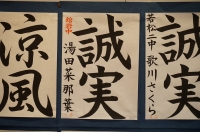 誠実
若松二中 歌川さくら
誠実
湯田菜那葉
涼風